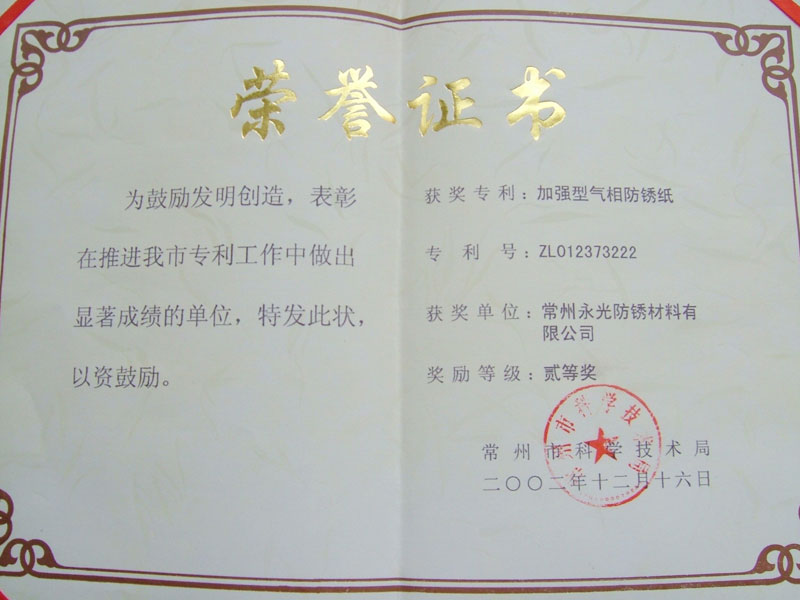 荣誉证书
为鼓励发明创造，表彰
在推进我市专利工作中做出
显著成绩的单位，特发此状，
以资鼓励。
获奖专利：加强型气相防锈纸
专利号：ZL012373222
获奖单位：常州永光防锈材料有
限公司
奖励等级：贰等奖
常州市科学技术局
二〇〇二年十二月十六日